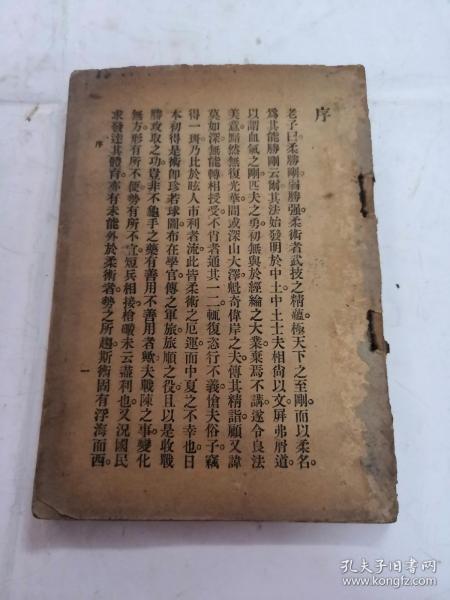 序
老子曰。柔勝剛。弱勝强。柔術者武技之精蘊。極天下之至剛。而以柔名。
爲其能勝剛云爾。其法始發明於中土。中土士夫相尙以文。屏弗屑道。
以謂血氣之剛。匹夫之勇。初無與於經綸之大業。棄焉不講。遂令良法
美意。黯然無復光華。間或深山大澤。魁奇偉岸之夫。傳其精詣。顧又諱
莫如深。無能轉相授受。不肖者通其一二。輒復恣行不義。傖夫俗子。竊
得一斑。乃比於眩人市利者流。此皆柔術之厄運。而中夏之不幸也。日
本初得是術。卽珍若球圖。布在學官。傳之軍旅。旅順之役。且以是收戰
勝攻取之功。豈非不龜手之藥。有善用不善用者歟。夫戰陳之事。變化
無方。形有所不便。勢有所不宜。短兵相接。槍礮未云盡利也。又況國民
求發達其體育。亦有未能外於柔術者。勢之所趨。斯術固有浮海而西。
序
一
孔夫子旧书网
www.kongfz.com